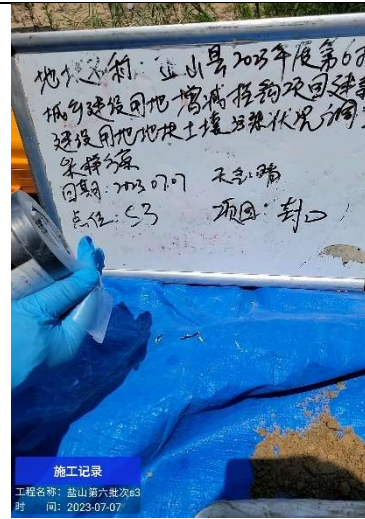 地块名称：盐山县2023年度第6批
城乡建设用地增减挂钩项目建新
建设用地地块土壤污染状况调
采样
日期：2023.07.07 天气：晴
点位：S3 项目：封口
施工记录
工程名称：盐山第六批次s3
时 间：2023-07-07